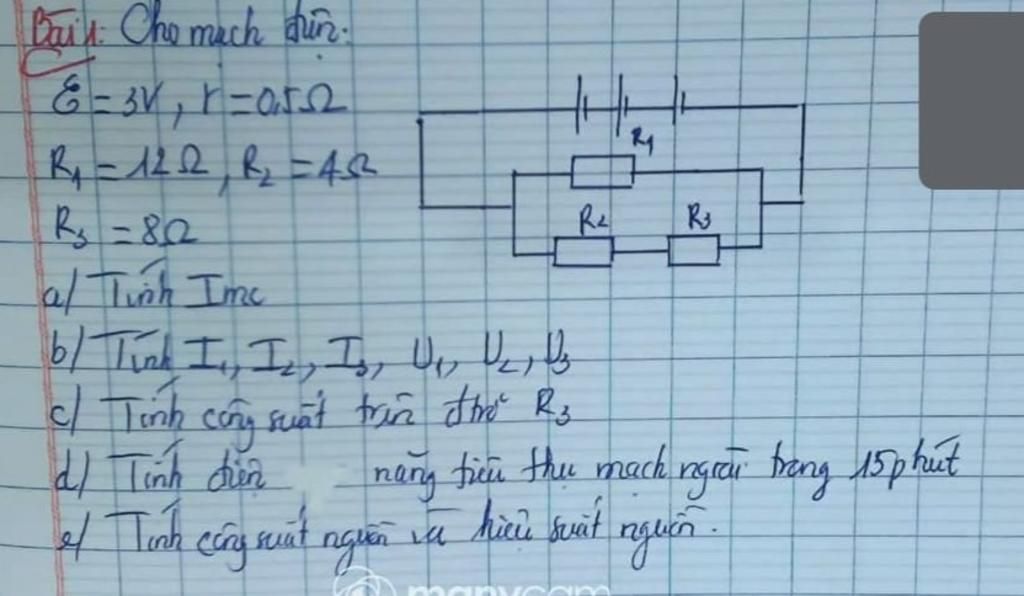 Bài 1: Cho mạch điện.
ℰ = 3V, r = 0,5Ω
R₁ = 12Ω, R₂ = 4Ω
R₃ = 8Ω
R₁
R₂ R₃
a/ Tính Imc
b/ Tính I₁, I₂, I₃, U₁, U₂, U₃
c/ Tính công suất trên đtrở R₃
d/ Tính điện năng tiêu thụ mạch ngoài trong 15phút
e/ Tính công suất nguồn và hiệu suất nguồn.
manycam